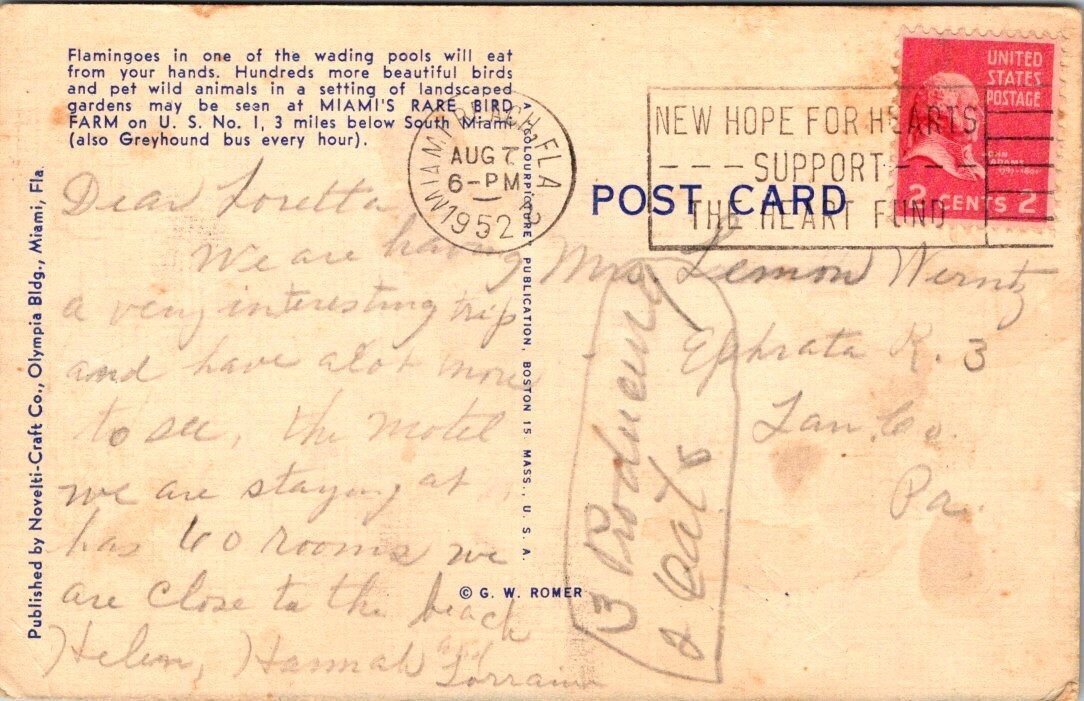 Flamingoes in one of the wading pools will eat
from your hands. Hundreds more beautiful birds
and pet wild animals in a setting of landscaped
gardens may be seen at MIAMI'S RARE BIRD
FARM on U. S. No. 1, 3 miles below South Miami
(also Greyhound bus every hour).
Published by Novelti-Craft Co., Olympia Bldg., Miami, Fla.
A COLOURPICTURE PUBLICATION, BOSTON 15, MASS., U. S. A.
© G. W. ROMER
POST CARD
MIAMI BEACH, FLA
AUG 7
6-PM
1952
NEW HOPE FOR HEARTS
SUPPORT
THE HEART FUND
UNITED
STATES
POSTAGE
JOHN
ADAMS
2 CENTS 2
Dear Loretta
We are having
a very interesting trip
and have alot more
to see, the motel
we are staying at
has 60 rooms we
are close to the beach
Helen, Hannah
Lorraine
Mrs Lemon Werntz
Ephrata R. 3
Lan. Co.
Pa.
3 Producing